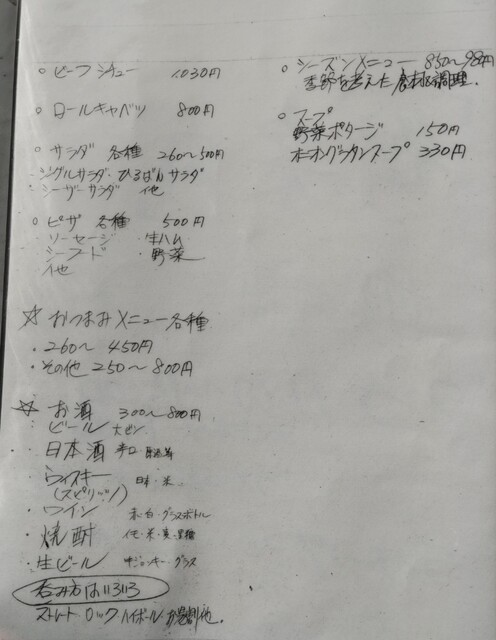 ○ ビーフシチュー 1,030円
○ ロールキャベツ 800円
○ サラダ 各種 260〜500円
シーザーサラダ 他
○ ピザ 各種 500円
ソーセージ ・生ハム
シーフード ・野菜
他
☆ おつまみメニュー各種
・260〜450円
・その他 250〜800円
☆ お酒 300〜800円
ビール 大ビン
・日本酒 辛口
・ウィスキー 日本・米
(スピリッツ)
・ワイン 赤・白・グラスボトル
・焼酎 芋・米・麦・黒糖
・生ビール 中ジョッキー・グラス
呑み方はいろいろ
ストレート ロック ハイボール お湯割 他.
○ シーズンメニュー 850〜980円
季節を考えた食材を調理.
○ スープ
野菜ポタージ 150円
オニオングラタンスープ 330円